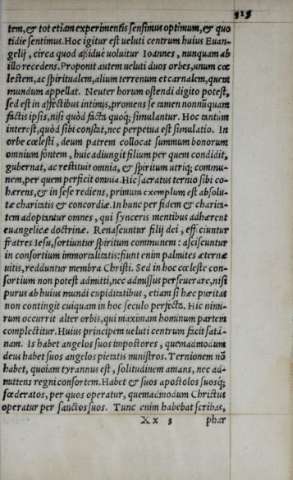 515
tem, & tot etiam experimentis sensimus optimum, & quo
tidie sentimus. Hoc igitur est ueluti centrum huius Euan-
gelij, circa quod assidue uoluitur Ioannes, nunquam ab
illo recedens. Proponit autem ueluti duos orbes, unum cœ
lestem, ac spiritualem, alium terrenum et carnalem, quem
mundum appellat. Neuter horum ostendi digito potest,
sed est in affectibus intimis, promens se tamen nonnunquam
factis ipsis, nisi quòd facta quoq; simulantur. Hoc tantum
interest, quòd sibi constat, nec perpetua est simulatio. In
orbe cœlesti, deum patrem collocat summum bonorum
omnium fontem, huic adiungit filium per quem condidit,
gubernat, ac restituit omnia, & spiritum utriq; commu-
nem, per quem perficit omnia. Hic sacratus ternio sibi co-
hærens, & in sese rediens, primum exemplum est absolu-
tæ charitatis & concordiæ. In hunc per fidem & charita-
tem adoptantur omnes, qui synceris mentibus adhærent
euangelicæ doctrinæ. Renascuntur filij dei, efficiuntur
fratres Iesu, sortiuntur spiritum communem: asciscuntur
in consortium immortalitatis: fiunt enim palmites æternæ
uitis, redduntur membra Christi. Sed in hoc cœleste con-
sortium non potest admitti, nec admissus perseuerare, nisi
purus ab huius mundi cupiditatibus, etiam si hæc puritas
non contingit cuiquam in hoc seculo perfecta. Hic mini-
rum occurrit alter orbis, qui maximam hominum partem
complectitur. Huius principem ueluti centrum facit satã-
nam. Is habet angelos suos impostores, quemadmodum
deus habet suos angelos pietatis ministros. Ternionem nõ
habet, quoniam tyrannus est, solitudinem amans, nec ad-
mittens regni consortem. Habet & suos apostolos suosq;
fœderatos, per quos operatur, quemadmodum Christus
operatur per sanctos suos. Tunc enim habebat scribas,
X x 5 phar